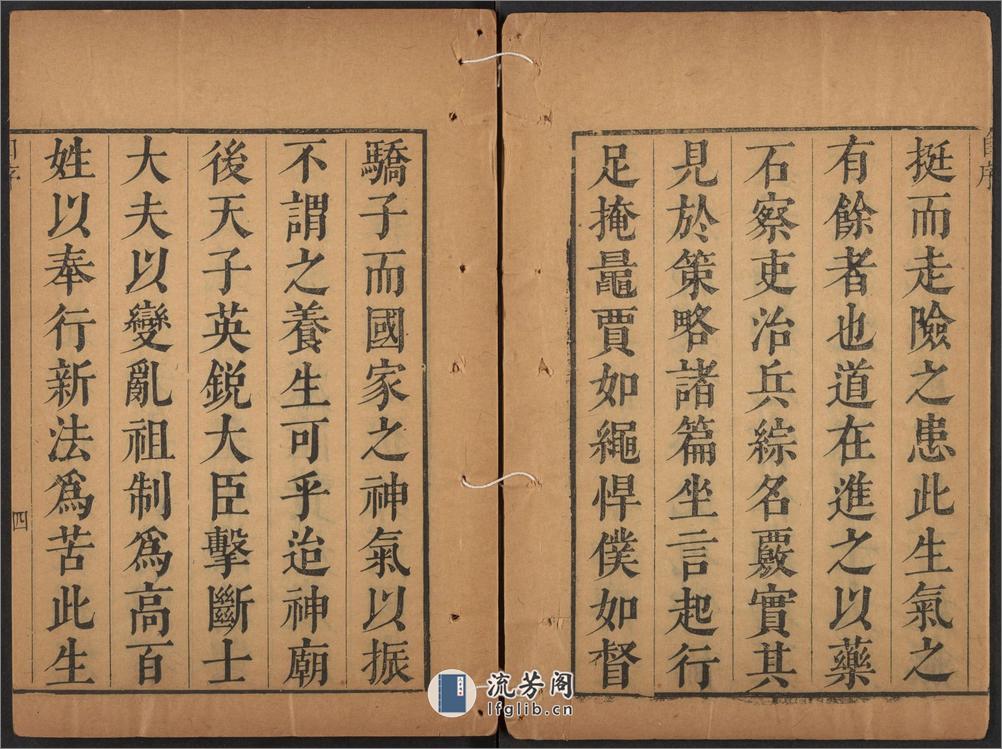 挺而走險之患此生氣之
有餘者也道在進之以藥
石察吏治兵綜名覈實其
見於策略諸篇坐言起行
足掩鼂賈如繩悍僕如督
驕子而國家之神氣以振
不謂之養生可乎迨神廟
後天子英銳大臣擊斷士
大夫以變亂祖制爲高百
姓以奉行新法爲苦此生
四
流芳阁
lfglib.cn